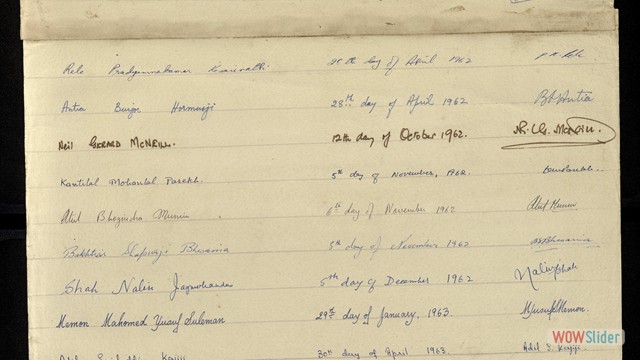 Rele Pradyumnakumar 28th day of April 1962
Antia Burjor Hormusji 28th day of April 1962 B.H. Antia
Neil GERARD McNEILL. 12th day of October 1962. N. G. McNeill.
Kantilal Mohanlal Parekh. 5th day of November, 1962
Atul Bhogendra Munim 6th day of November 1962 Atul Munim
Bakhtiar Shapurji Bhesania 8th day of November 1962
Shah Nalin 5th day of December 1962
Memon Mahomed Yusuf Suleman 29th day of January, 1963. M Yusuf Memon.
30th day of April 1963. Adil S. Kajiji
WOWSlider